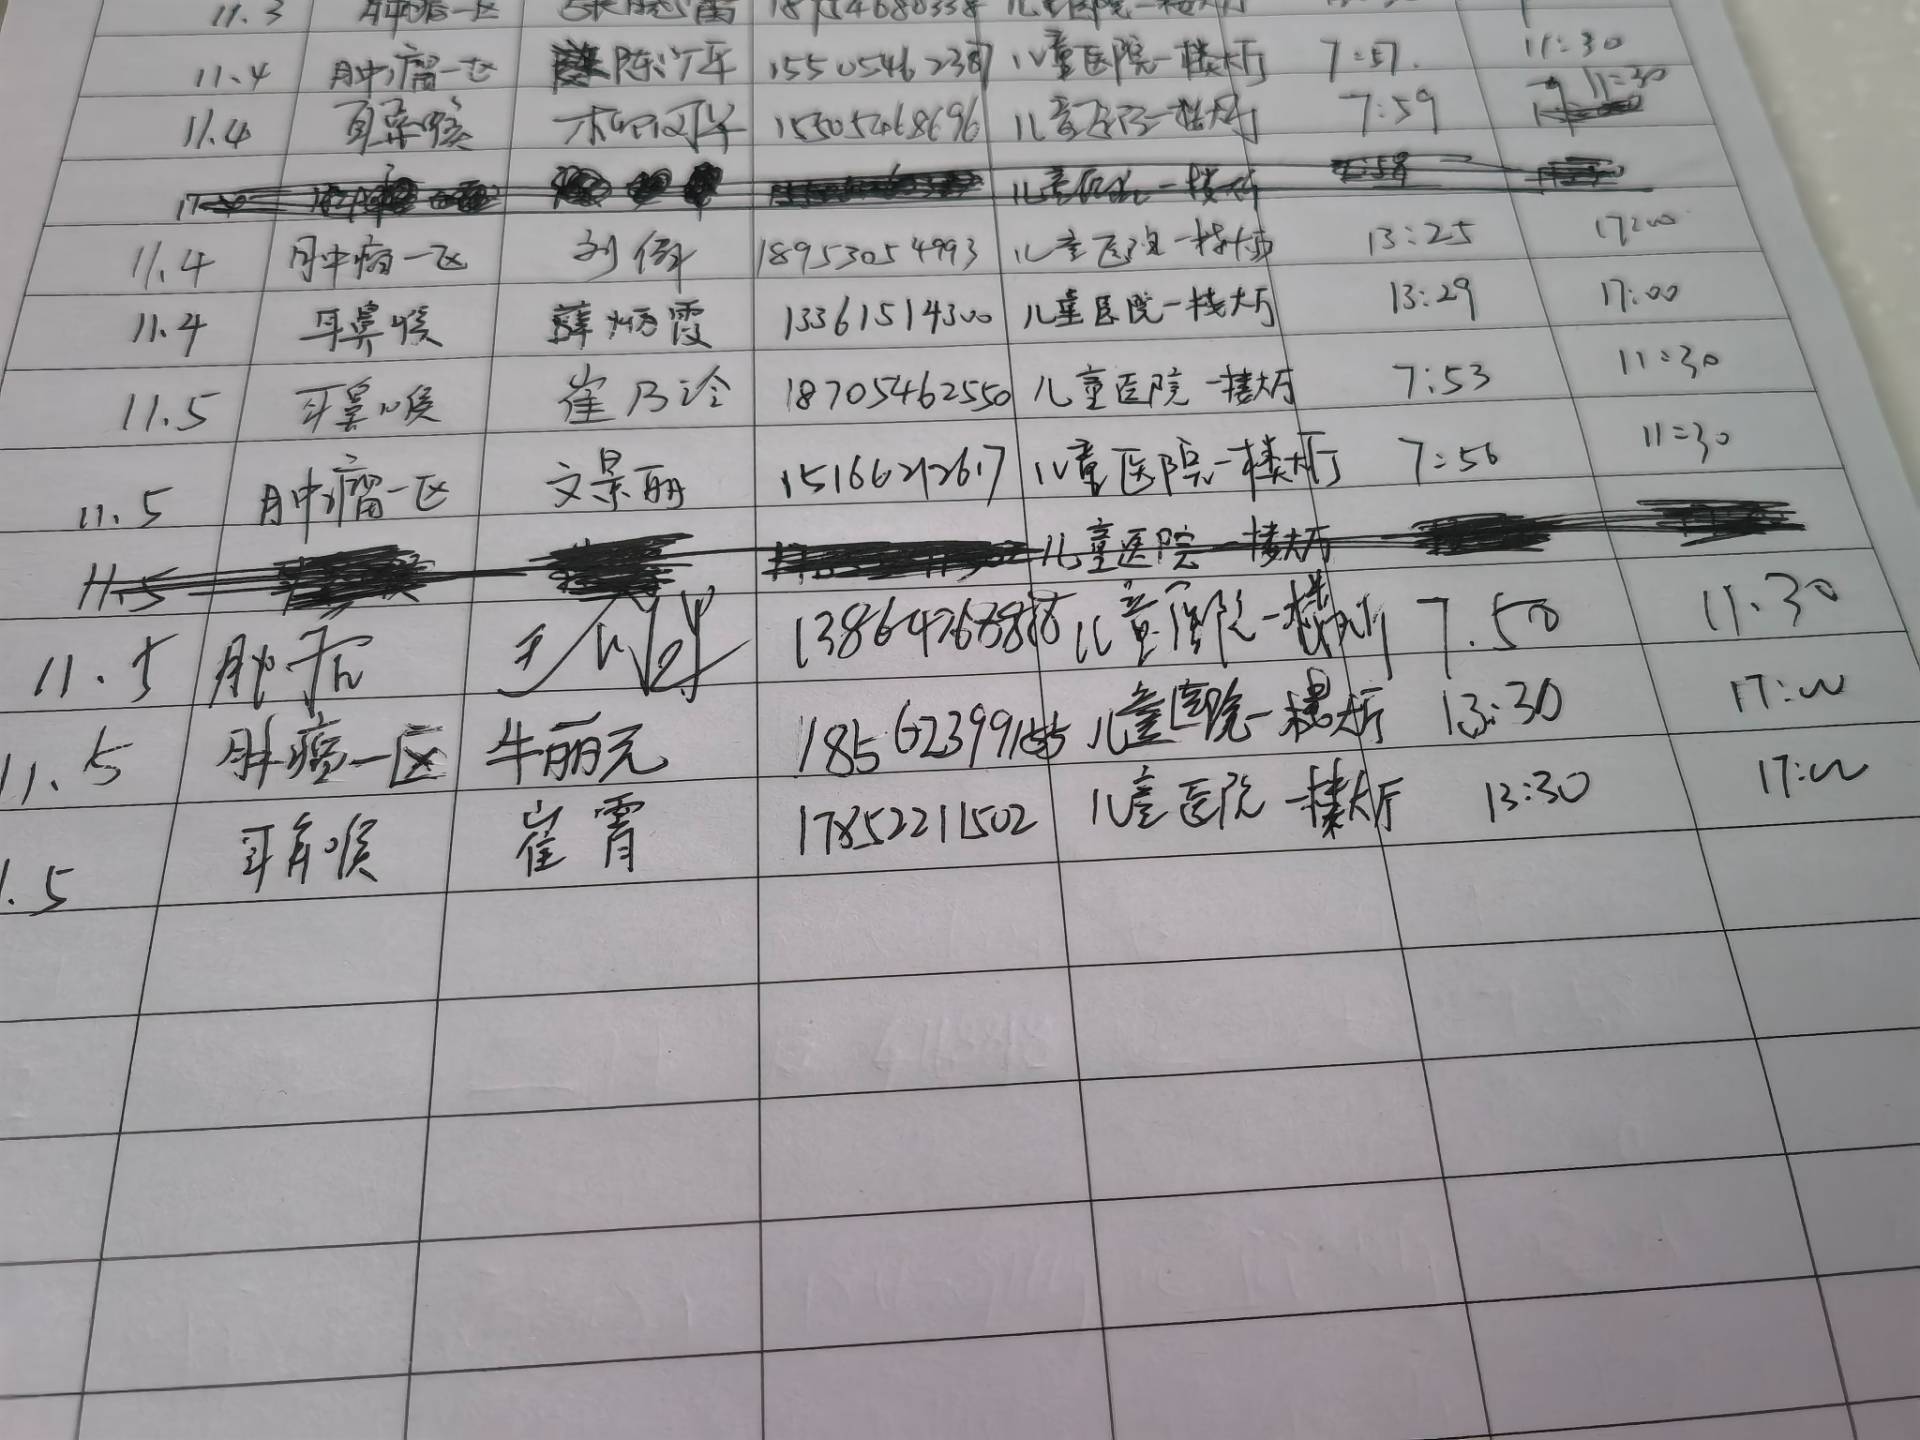 11.3 肿瘤一区 18754680338 儿童医院一楼大厅
11.4 肿瘤一区 陈 15505462387 儿童医院一楼大厅 7:57. 11:30
11.4 耳鼻喉 15505468696 儿童医院一楼大厅 7:59 11:30
儿童医院一楼大厅
11.4 肿瘤一区 刘倩 18953054993 儿童医院一楼大厅 13:25 17:00
11.4 耳鼻喉 薛炳霞 13361514300 儿童医院一楼大厅 13:29 17:00
11.5 耳鼻喉 崔乃泠 18705462550 儿童医院一楼大厅 7:53 11:30
11.5 肿瘤一区 文景丽 15166212617 儿童医院一楼大厅 7:56 11:30
11.5 儿童医院一楼大厅
11.5 儿童医院一楼大厅 7.50 11.30
11.5 肿瘤一区 牛丽元 儿童医院一楼大厅 13:30 17:00
1.5 耳鼻喉 崔霄 17852211502 儿童医院一楼大厅 13:30 17:00